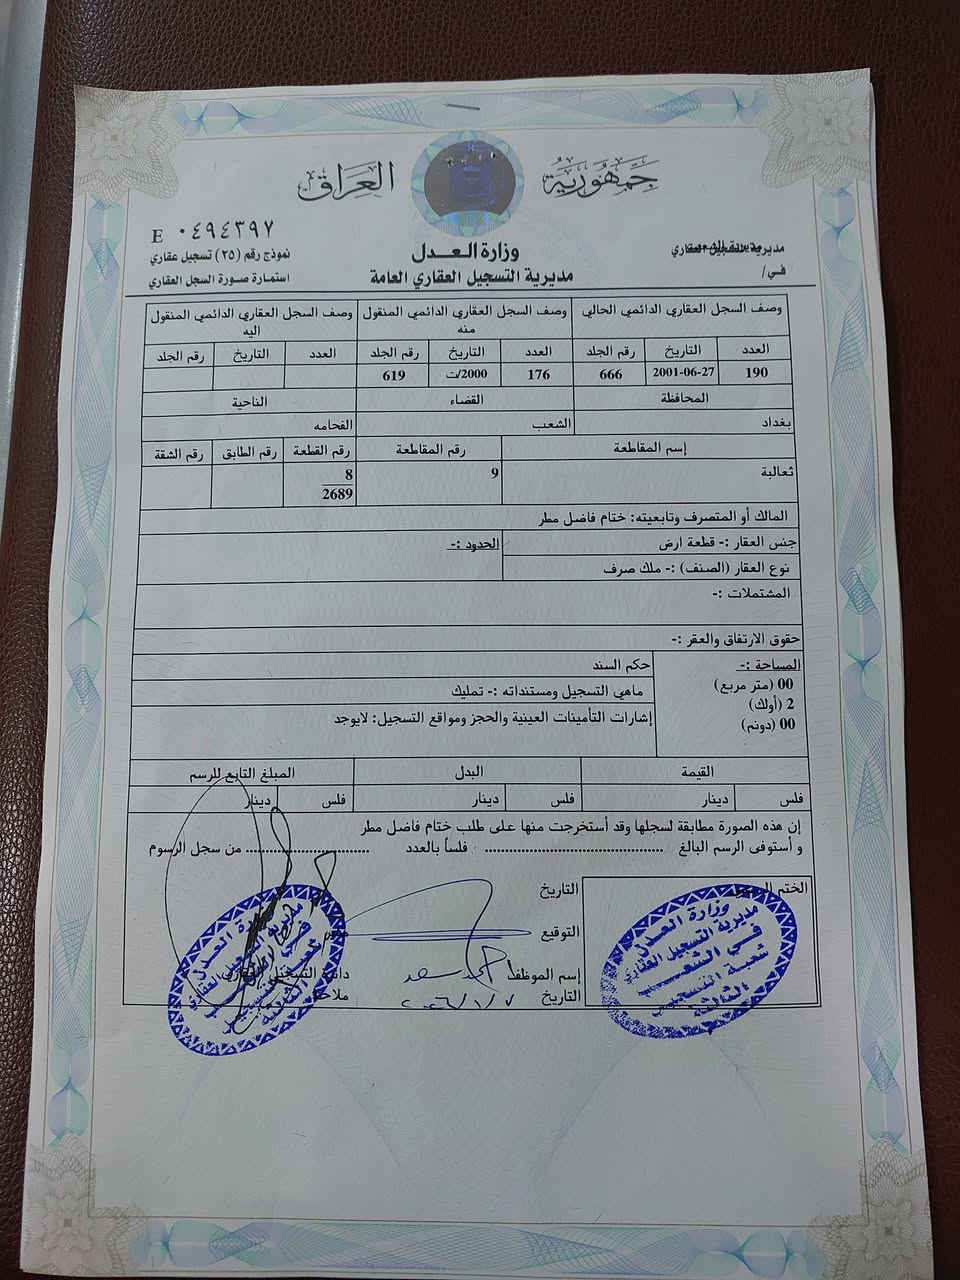 جمهورية العراق
E ٠٤٩٤٣٩٧
وزارة العدل
مديرية التسجيل العقاري
نموذج رقم (٢٥) تسجيل عقاري
مديرية التسجيل العقاري العامة
في/
استمارة صورة السجل العقاري
وصف السجل العقاري الدائمي الحالي
وصف السجل العقاري الدائمي المنقول منه
وصف السجل العقاري الدائمي المنقول اليه
العدد التاريخ رقم الجلد العدد التاريخ رقم الجلد العدد التاريخ رقم الجلد
190 2001-06-27 666 176 2000/ت 619
المحافظة القضاء الناحية
بغداد الشعب الفحامه
إسم المقاطعة رقم المقاطعة رقم القطعة رقم الطابق رقم الشقة
ثعالبة 9 8
2689
المالك أو المتصرف وتابعيته: ختام فاضل مطر
جنس العقار :- قطعة ارض الحدود :-
نوع العقار (الصنف) :- ملك صرف
المشتملات :-
حقوق الارتفاق والعقر :-
المساحة :- حكم السند
00 (متر مربع) ماهي التسجيل ومستنداته :- تمليك
2 (أولك) إشارات التأمينات العينية والحجز ومواقع التسجيل: لايوجد
00 (دونم)
القيمة البدل المبلغ التابع للرسم
فلس دينار فلس دينار فلس دينار
إن هذه الصورة مطابقة لسجلها وقد أستخرجت منها على طلب ختام فاضل مطر
و أستوفى الرسم البالغ ........ فلساً بالعدد ........ من سجل الرسوم
الختم التاريخ
التوقيع
إسم الموظف احمد سعد
التاريخ ٢٠٢٦/١/٧
وزارة العدل
مديرية التسجيل العقاري
في الشعب
شعبة التسجيل
الثالثة
وزارة العدل
مديرية التسجيل العقاري
الثالثة